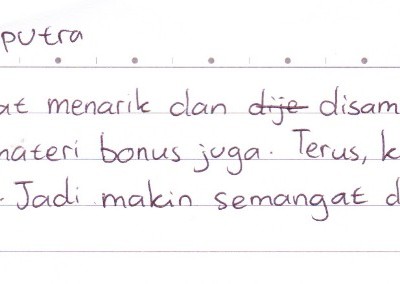 putra
at menarik dan dije disam
materi bonus juga. Terus, k
Jadi makin semangat d